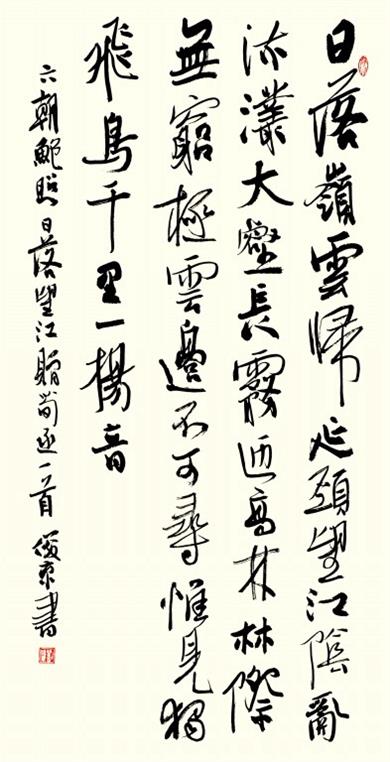 日落嶺雲歸延頸望江陰亂
流灇大壑長霧迊高林林際
無窮極雲邊不可尋惟見獨
飛鳥千里一揚音
六朝鮑照日落望江贈荀丞一首 俊京書